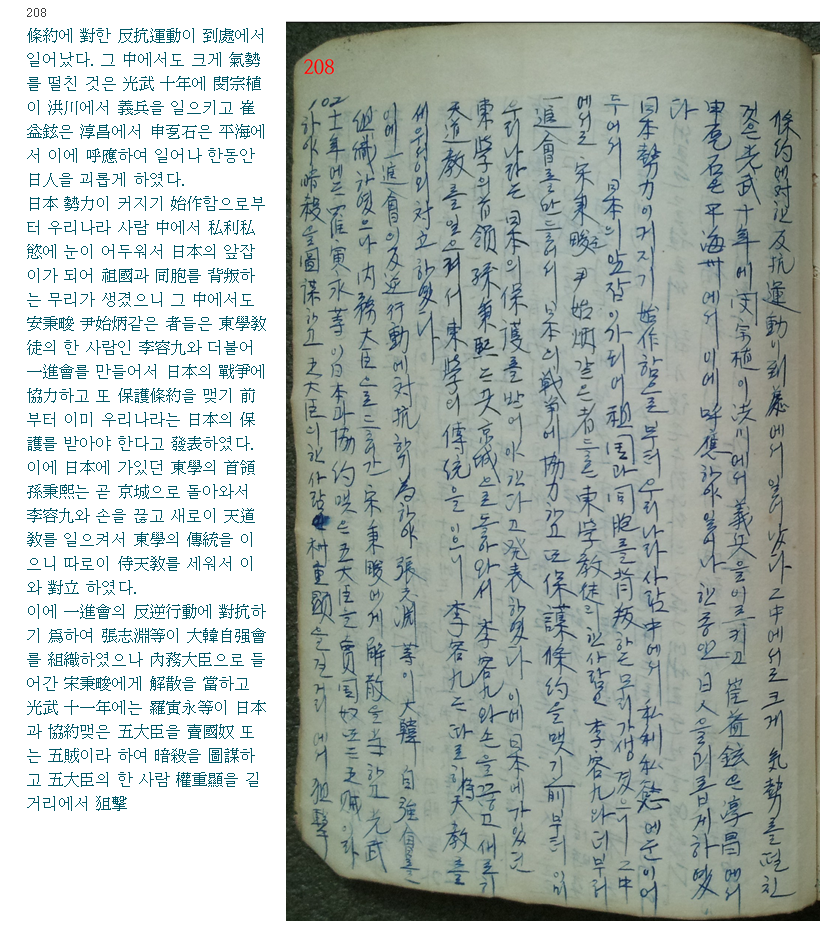 208
條約에 對한 反抗運動이 到處에서
일어났다. 그 中에서도 크게 氣勢
를 떨친 것은 光武 十年에 閔宗植
이 洪川에서 義兵을 일으키고 崔
益鉉은 淳昌에서 申乭石은 平海에
서 이에 呼應하여 일어나 한동안
日人을 괴롭게 하였다.
日本 勢力이 커지기 始作함으로부
터 우리나라 사람 中에서 私利私
慾에 눈이 어두워서 日本의 앞잡
이가 되어 祖國과 同胞를 背叛하
는 무리가 생겼으니 그 中에서도
安秉畯 尹始炳같은 者들은 東學敎
徒의 한 사람인 李容九와 더불어
一進會를 만들어서 日本의 戰爭에
協力하고 또 保護條約을 맺기 前
부터 이미 우리나라는 日本의 保
護를 받아야 한다고 發表하였다.
이에 日本에 가있던 東學의 首領
孫秉熙는 곧 京城으로 돌아와서
李容九와 손을 끊고 새로이 天道
敎를 일으켜서 東學의 傳統을 이
으니 따로이 侍天敎를 세워서 이
와 對立 하였다.
이에 一進會의 反逆行動에 對抗하
기 爲하여 張志淵等이 大韓自强會
를 組織하였으나 內務大臣으로 들
어간 宋秉畯에게 解散을 當하고
光武 十一年에는 羅寅永等이 日本
과 協約맺은 五大臣을 賣國奴 또
는 五賊이라 하여 暗殺을 圖謀하
고 五大臣의 한 사람 權重顯을 길
거리에서 狙擊
208
條約에 対한 反抗運動이 到處에서 일어났다 그中에서도 크게 氣勢를 떨친
것은 光武 十年에 閔宗植이 洪川에서 義兵을 이르키고 崔益鉉은 淳昌에서
申乭石은 平海에서 이에 呼應하야 일어나 한동안 日人을 괴롭게 하였
다
日本勢力이 커지기 始作함으로 부터 우리나라 사람中에서 私利私慾에 눈이어
두어서 日本의 앞잡이가 되어 祖国과 同胞를 背叛하는 무리가 생겼으니 그中
에서도 宋秉畯 尹始炳같은 者들은 東学教徒의 한사람인 李容九와 더부러
一進會를 만들어서 日本의 戦争에 協力하고 또 保護條約을 맺기 前부터 이미
우리나라는 日本의 保護를 받어야 한다고 発表하였다 이에 日本에 가있던
東学의 首領 孫秉熙는 곳 京城으로 돌아와서 李容九와 손을 끊고 새로기
天道教를 일으켜서 東学의 傳統을 이으니 李容九는 따로히 侍天教를
세워 이와 対立하였다
이에 一進會의 反逆行動에 対抗하기 爲하야 張志淵等이 大韓自強會를
組織하였으나 内務大臣으로 들어간 宋秉畯에게 解散을 当하고 光武
十一年에는 羅寅永等이 日本과 協約맺은 五大臣을 賣国奴 또는 五賊이라
하야 暗殺을 圖謀하고 五大臣의 한사람 権重顯을 길거리에서 狙擊